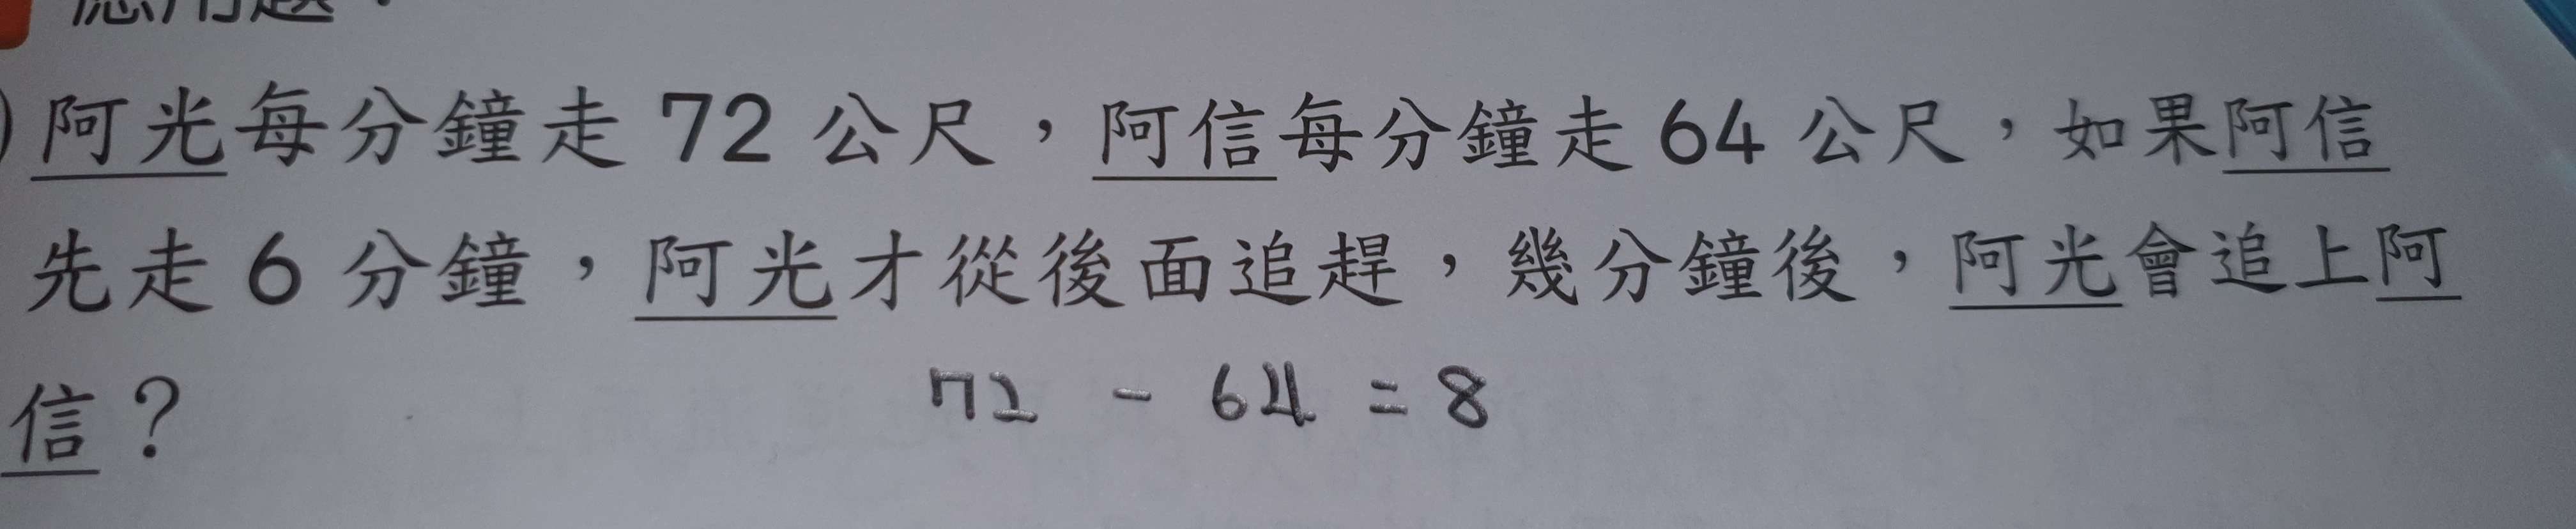 應用題：
)阿光每分鐘走 72 公尺，阿信每分鐘走 64 公尺，如果阿信
先走 6 分鐘，阿光才從後面追趕，幾分鐘後，阿光會追上阿
信？
72 - 64 = 8